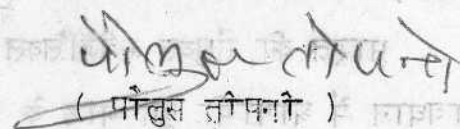 पौलुस तोपनो
( पौलुस तोपनो )